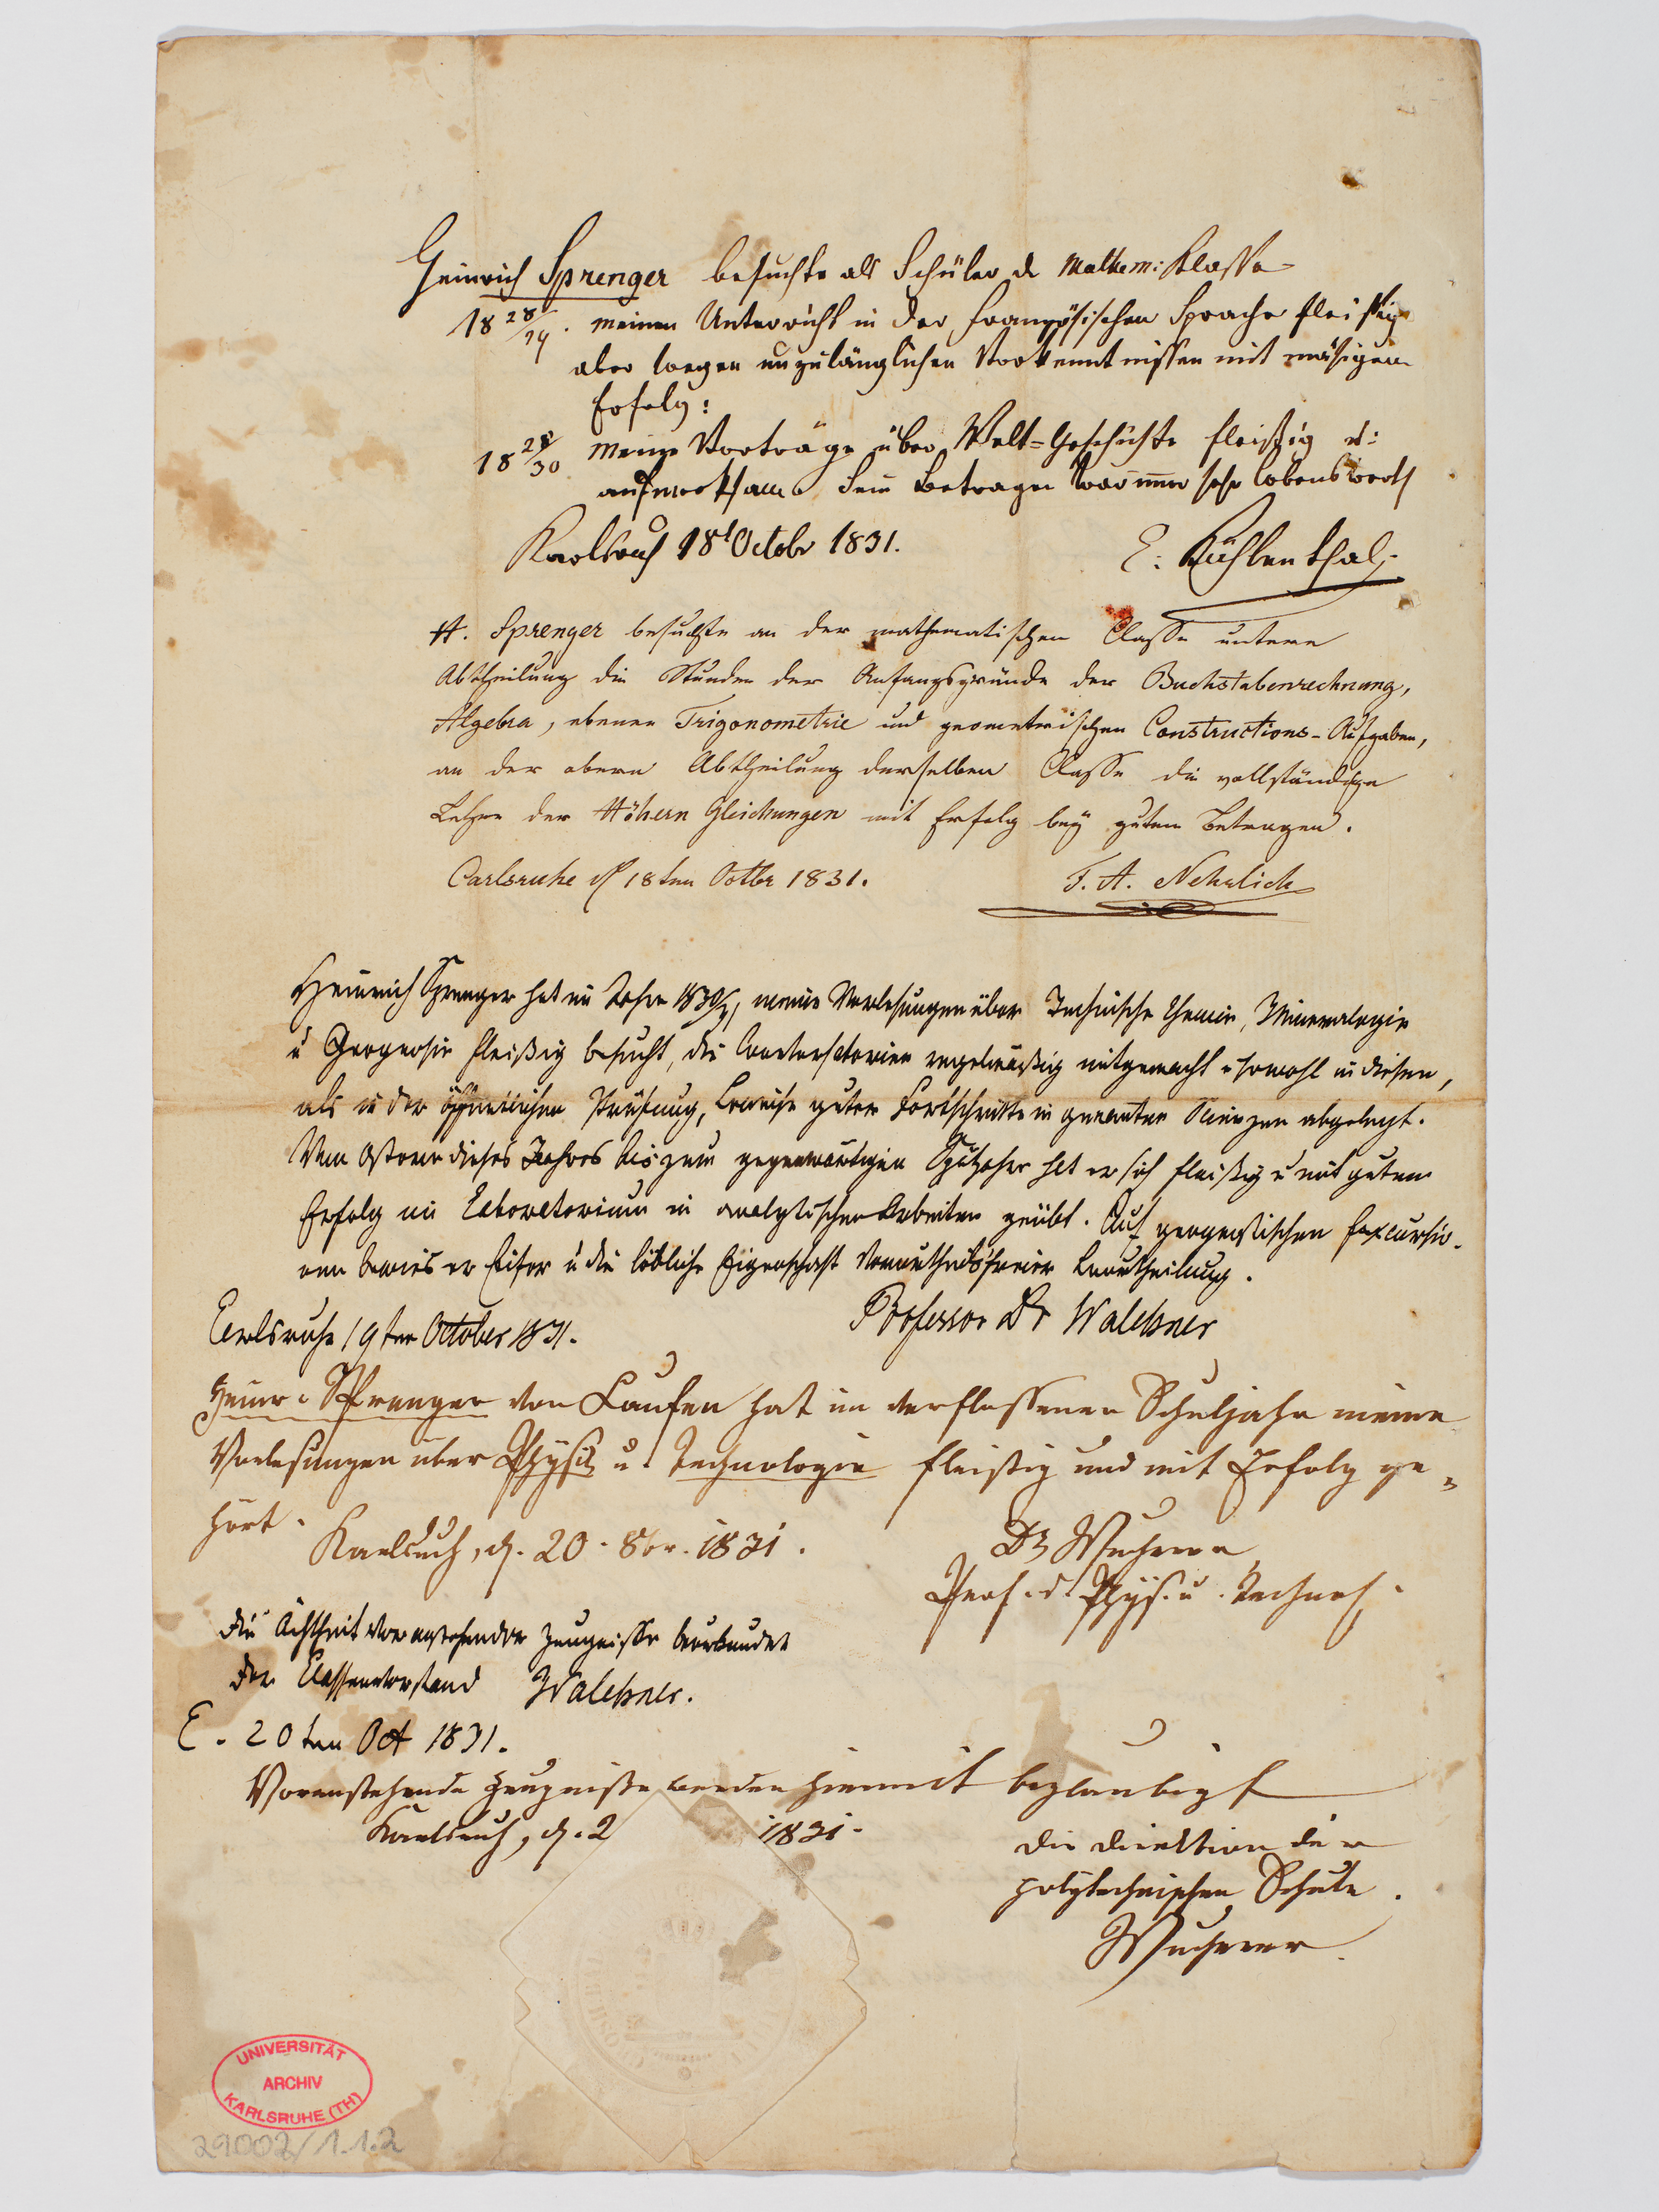 Heinrich Sprenger besuchte als Schüler d. Mathem: Klasse
18 28/29. meinen Unterricht in der französischen Sprache fleißig
aber wegen unzulänglichen Vorkenntnissen mit mäsigem
Erfolg:
18 29/30 meine Vorträge über Welt=Geschichte fleißig u:
aufmerksam. Sein Betragen war immer sehr lobenswerth
Karlsruh 18t Octobr 1831.
E: Kühlenthal.
H. Sprenger besuchte an der mathematischen Classe untere
Abtheilung die Stunden der Anfangsgründe der Buchstabenrechnung,
Algebra, ebenen Trigonometrie und geometrischen Constructions-Aufgaben,
an der obern Abtheilung derselben Classe die vollständige
Lehre der Höhern Gleichungen mit Erfolg bey gutem Betragen.
Carlsruhe d 18ten Octbr 1831.
F. A. Nehrlich
Heinrich Sprenger hat im Jahre 1830/31 meine Vorlesungen über Technische Chemie, Mineralogie
u Geognosie fleißig besucht, die Conversatorien regelmäßig mitgemacht u sowohl in diesen,
als in der öffentlichen Prüfung, Beweise guter Fortschritte in genannten Scienzen abgelegt.
Von Ostern dieses Jahres bis zum gegenwärtigen Spätjahr hat er sich fleißig u mit gutem
Erfolg im Laboratorium in analytischen Arbeiten geübt. Auf geognostischen Excursio-
nen bewies er Eifer u die löbliche Eigenschaft vorurtheilsfreier Beurtheilung.
Professor Dr Walchner
Carlsruhe 19ten October 1831.
Heinr. Sprenger von Laufen hat im verflossenen Schuljahr meine
Vorlesungen über Physik u. Technologie fleißig und mit Erfolg ge=
hört.
Karlsruh, d. 20. 8br. 1831.
Dr Wucherer
Prof. d. Phys. u. Technol.
Die Ächtheit voranstehender Zeugnisse beurkundet
der Classenvorstand Walchner.
C. 20ten Oct 1831.
Voranstehende Zeugnisse werden hiermit beglaubigt
Karlsruh, d. 2 1831.
Die Direktion der
polytechnischen Schule.
Wucherer
UNIVERSITÄT
ARCHIV
KARLSRUHE (TH)
29002/1.1.2